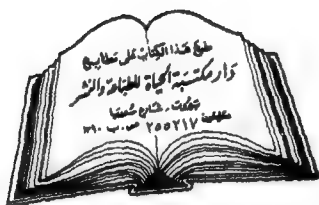 طبع هذا الكتاب على مطابع
دار مكتبة الحياة للطباعة والنشر
بيروت - شارع سوريا
تلفون ٢٥٥٢١٧ ص.ب. ١٣٩٠